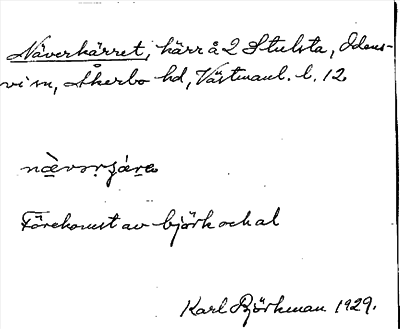 Näverkärret, kärr å 2 Stulsta, Odens-
vi sn, Åkerbo hd, Västmanl. l. 12
Förekomst av björk och al
Karl Björkman 1929.